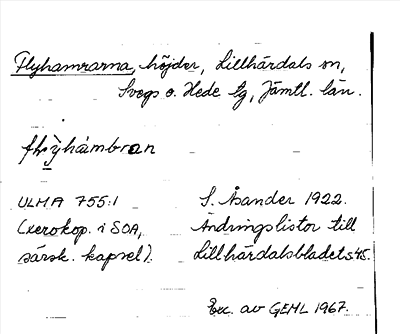 Flyhamrarna, höjder, Lillhärdals sn,
Svegs o. Hede tg, Jämtl. län.
ULMA 755:1
(xerokop. i SOA,
särsk. kapsel).
S. Åsander 1922.
Ändringslistor till
Lillhärdalsbladet s. 45.
Exc. av GEHL 1967.